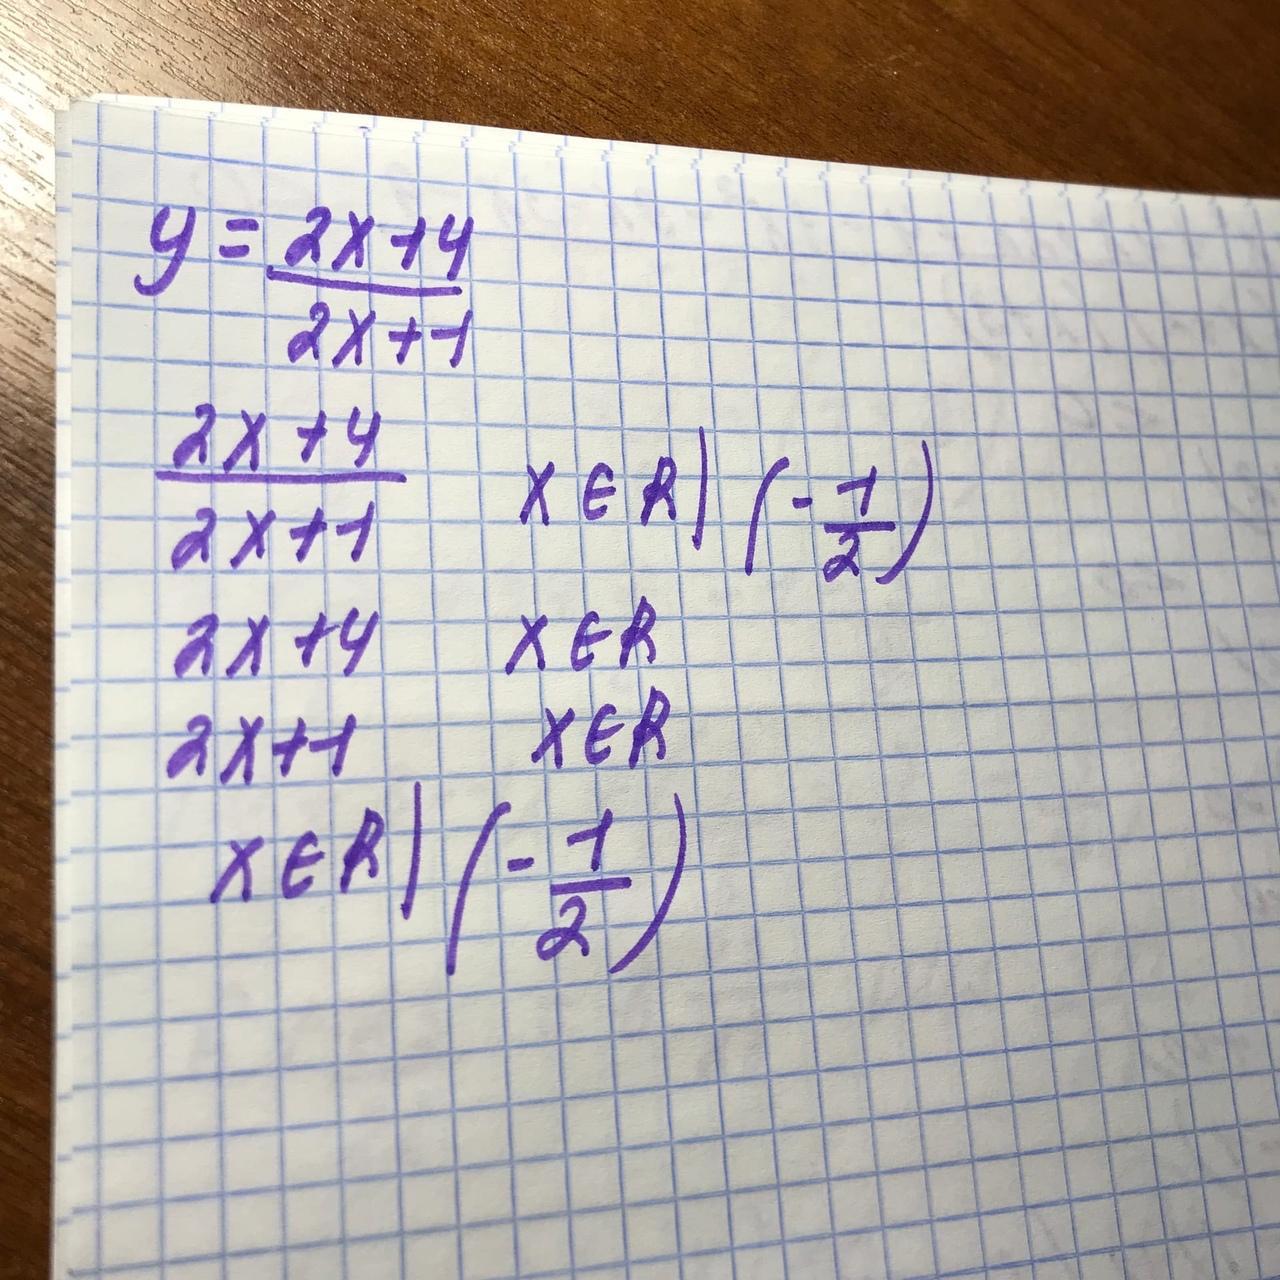 y = 2x+4
2x+1
2x+4
2x+1 x∈R| (-1/2)
2x+4 x∈R
2x+1 x∈R
x∈R| (-1/2)